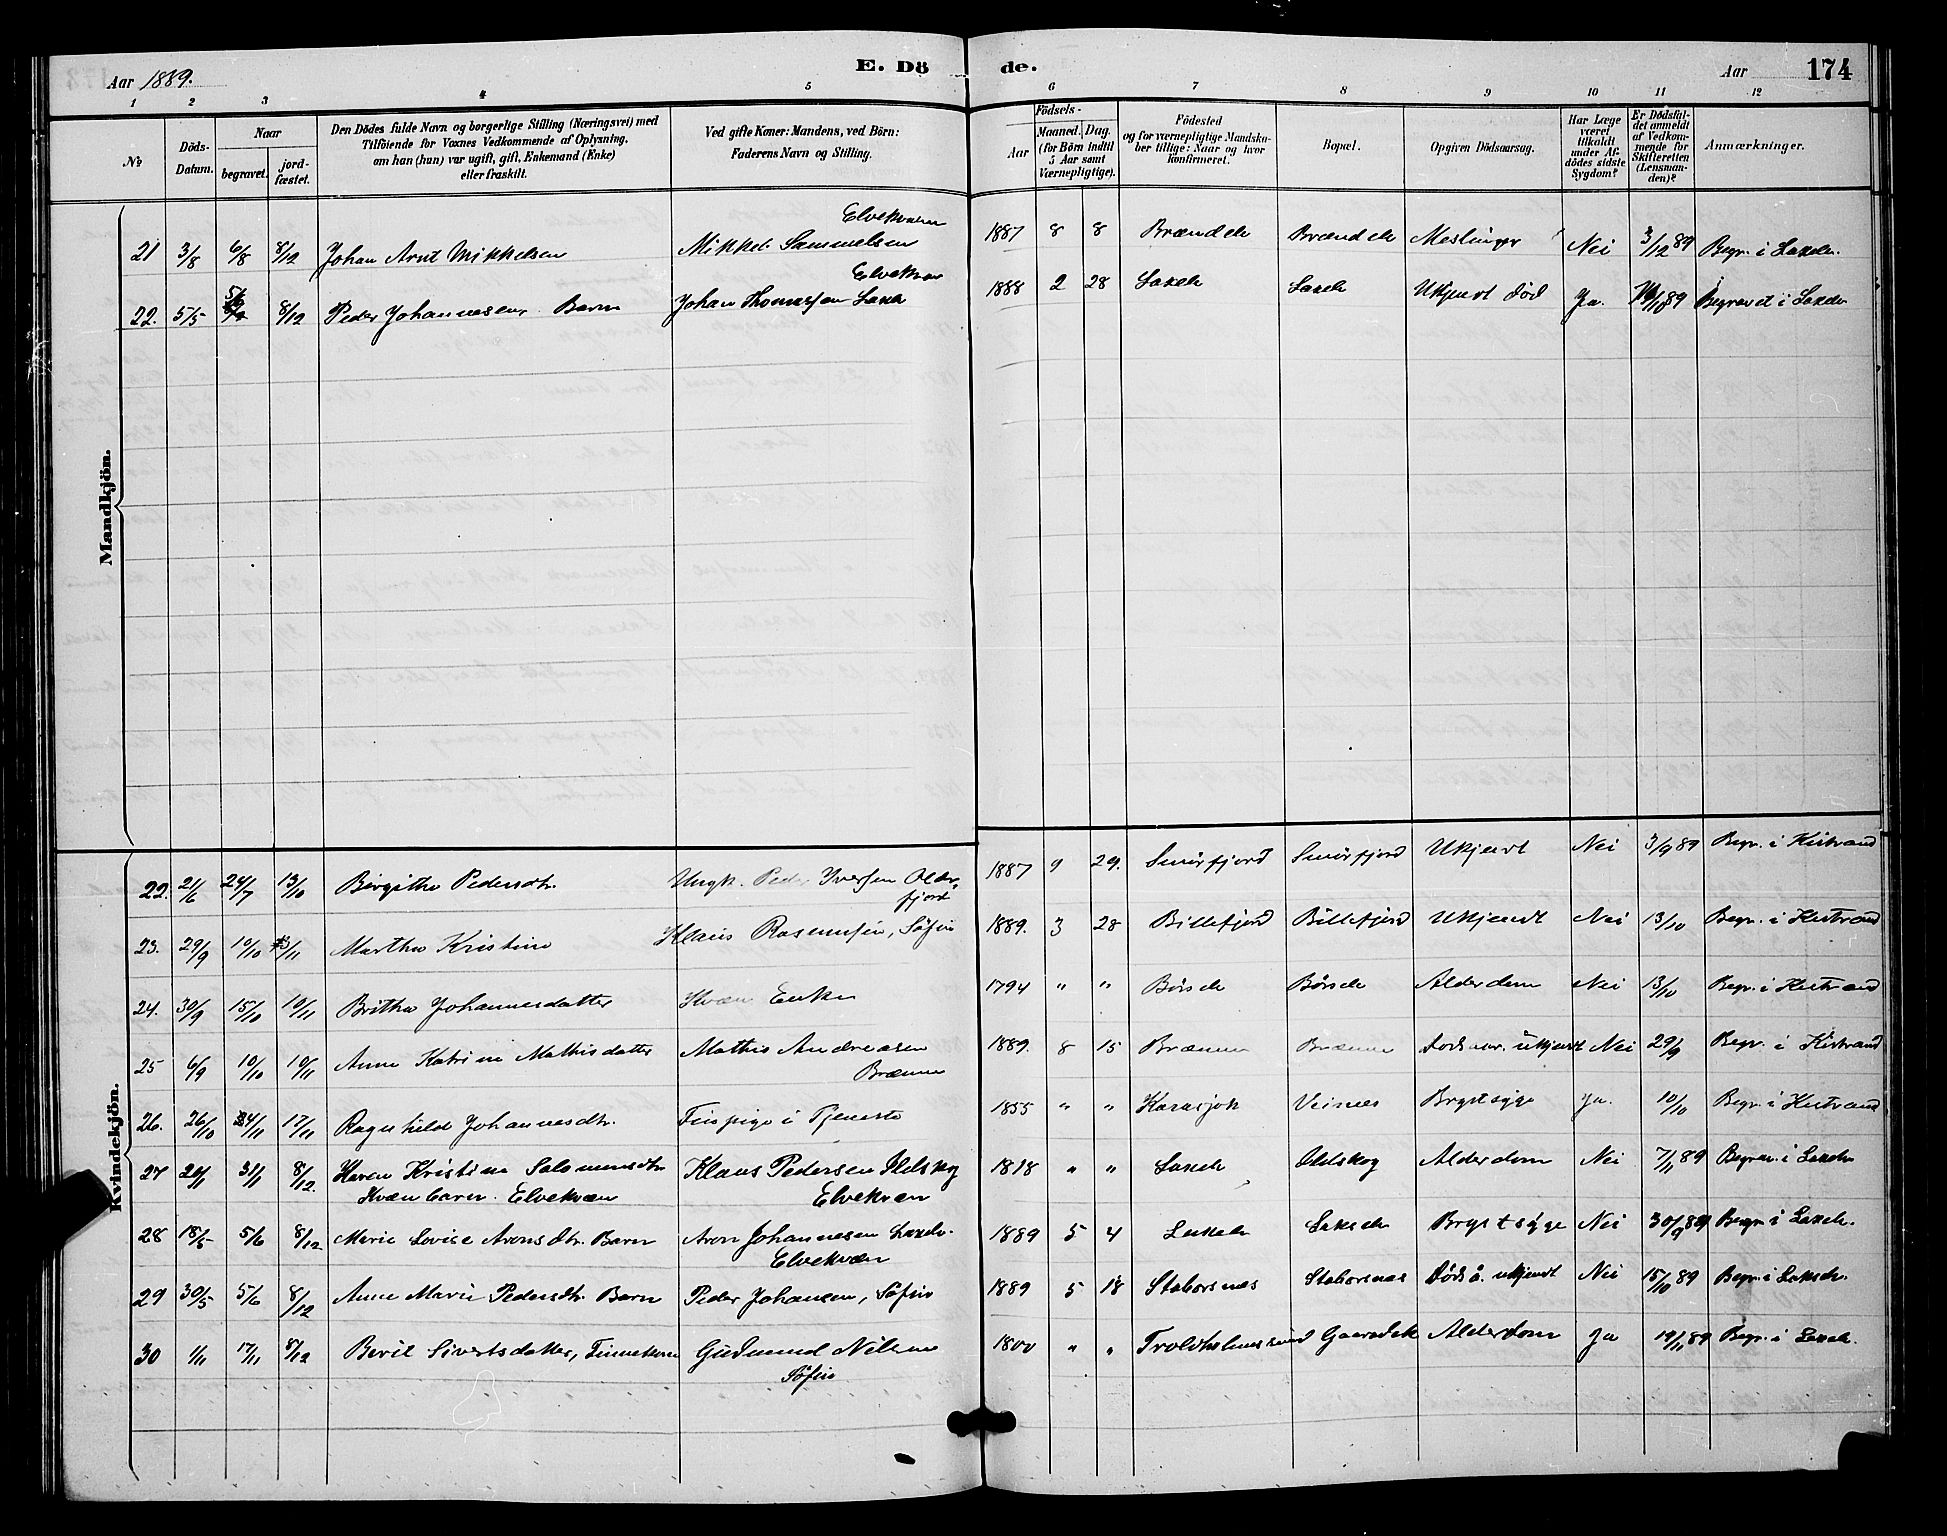 Aar 1889. E. Dö de. Aar 174
1 2 3 4 5 6 7 8 9 10 11 12
No
Döds-Datum.
Naar
begravet.
jordfæstet.
Den Dödes fulde Navn og borgerlige Stilling (Næringsvei) med
Tilföiende for Voxnes Vedkommende af Oplysning,
om han (hun) var ugift, gift, Enkemand (Enke)
eller fraskilt.
Ved gifte Koner: Mandens, ved Börn:
Faderens Navn og Stilling.
Födsels-
Aar
Maaned. Dag.
(for Börn indtil
5 Aar samt
Værnepligtige).
Födested
og for værnepligtige Mandska-
ber tillige: Naar og hvor
konfirmeret.
Bopæl.
Opgiven Dödsaarsag.
Har Læge
været
tilkaldt
under Af-
dödes sidste
Sygdom?
Er Dödsfal-
det anmeldt
af Vedkom-
mende for
Skifteretten
(Lensman-
den)?
Anmærkninger.
Mandkjön.
Elvekvæn
21 3/8 6/8 8/12 Johan Arnt Mikkelsen Mikkel Sammelsen 1887 8 8 Brændelv Brændelv Meslinger Nei 3/12 89 Begr. i Laxelv.
Elvekvæn
22. 5/5 8/12 Peder Johannesen Barn Johan Thomassen Laxelv 1888 2 28 Laxelv Laxelv Ukjendt Död Ja. 89 Begravet i Laxelv
Kvindekjön.
22. 21/6 24/7 13/10 Birgitha Pedersdtr. Ungk. Peder Iversen Older-
fjord 1887 9 29. Smörfjord Smörfjord Ukjendt Nei 3/9 89 Begr. i Kistrand
23. 29/9 10/10 /11 Martha Kristine Klaus Rasmussen, Söfin 1889. 3 28 Billefjord Billefjord Ukjendt Nei 13/10 Begr. i Kistrand
24. 30/9 15/10 10/11 Britha Johannesdatter Kvæn Enke 1794 " " Börselv Börselv Alderdom Nei 13/10 Begr. i Kistrand
25 6/9 10/10 10/11 Anne Katrine Mathisdatter Mathis Andreasen
Brænna 1889. 8 15 Brænna Brænna Dödsaar. ukjendt Nei 29/9 Begr. i Kistrand
26. 26/10 4/11 17/11 Ragnhilde Johannesdtr. Finpige i Tjeneste 1855 " " Karasjok Veines Brystsyge Ja. 10/10 Begr. i Kistrand
27 24/1 31/1 8/12. Karen Kristine Salomonsdtr Klaus Pedersen Ildskog
Kvæn Elvekvæn Elvekvæn 1818 " " Laxelv Ildskog Alderdom Nei 7/1 89 Begrav. i Laxelv
28 18/5 5/6 8/12 Marie Lovise Aronsdtr. Barn Aron Johannesen Laxelv.
Elvekvæn 1889 5 4 Laxelv Lakselv Brystsyge Nei 30/9 89 Begr. i Laxelv.
29 30/5 5/6 8/12 Anne Marie Pedersdtr. Barn Peder Johansen, Söfin 1889 5 18 Staborsnæs Staborsnæs Döds å. ukjendt Nei 15/10 89 Begr. i Lakselv.
30 1/11 17/11 8/12 Berit Sivertsdatter, Finnekone Gudmund Nilsen
Söfin 1800 " " Troldholmsund Gaaradak Alderdom Ja 19/11 89 Begr. i Laxelv.